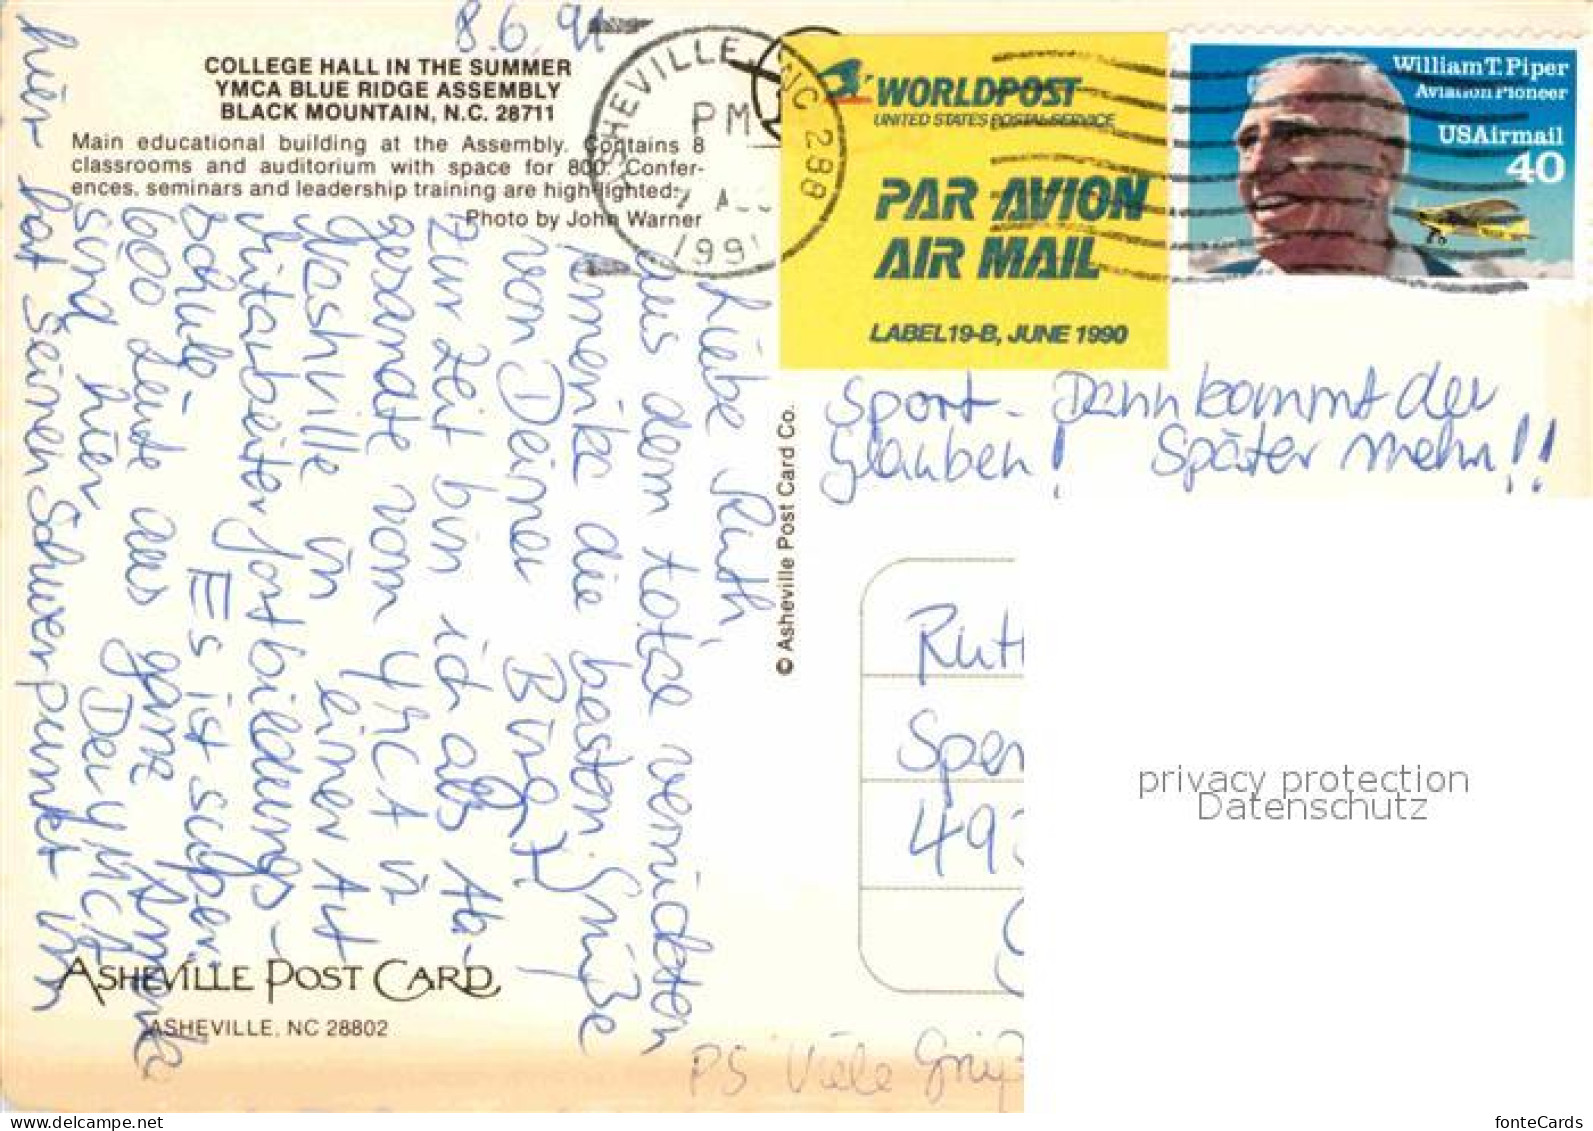 8.6.91
COLLEGE HALL IN THE SUMMER
YMCA BLUE RIDGE ASSEMBLY
BLACK MOUNTAIN, N.C. 28711
Main educational building at the Assembly. Contains 8
classrooms and auditorium with space for 800. Confer-
ences, seminars and leadership training are high-lighted.
Photo by John Warner
ASHEVILLE NC 288
PM
AUG
1991
WORLDPOST
UNITED STATES POSTAL SERVICE
PAR AVION
AIR MAIL
LABEL 19-B, JUNE 1990
William T. Piper
Aviation Pioneer
USAirmail
40
Liebe Ruth,
aus dem total verrückten
Amerika die besten Grüße
von Deiner
Zur Zeit bin ich als Ab-
gesandte vom YMCA in
Nashville in einer Art
Mitarbeiterfortbildungs-
schule. Es ist super.
600 Leute aus ganz Amerika
sind hier. Der YMCA
hier hat seinen Schwerpunkt im
Sport. Dann kommt der
Glauben! Später mehr!!
© Asheville Post Card Co.
Ruth
Spen
493
ASHEVILLE POST CARD
ASHEVILLE, NC 28802
PS Viele Grüß
privacy protection
Datenschutz
fonteCards